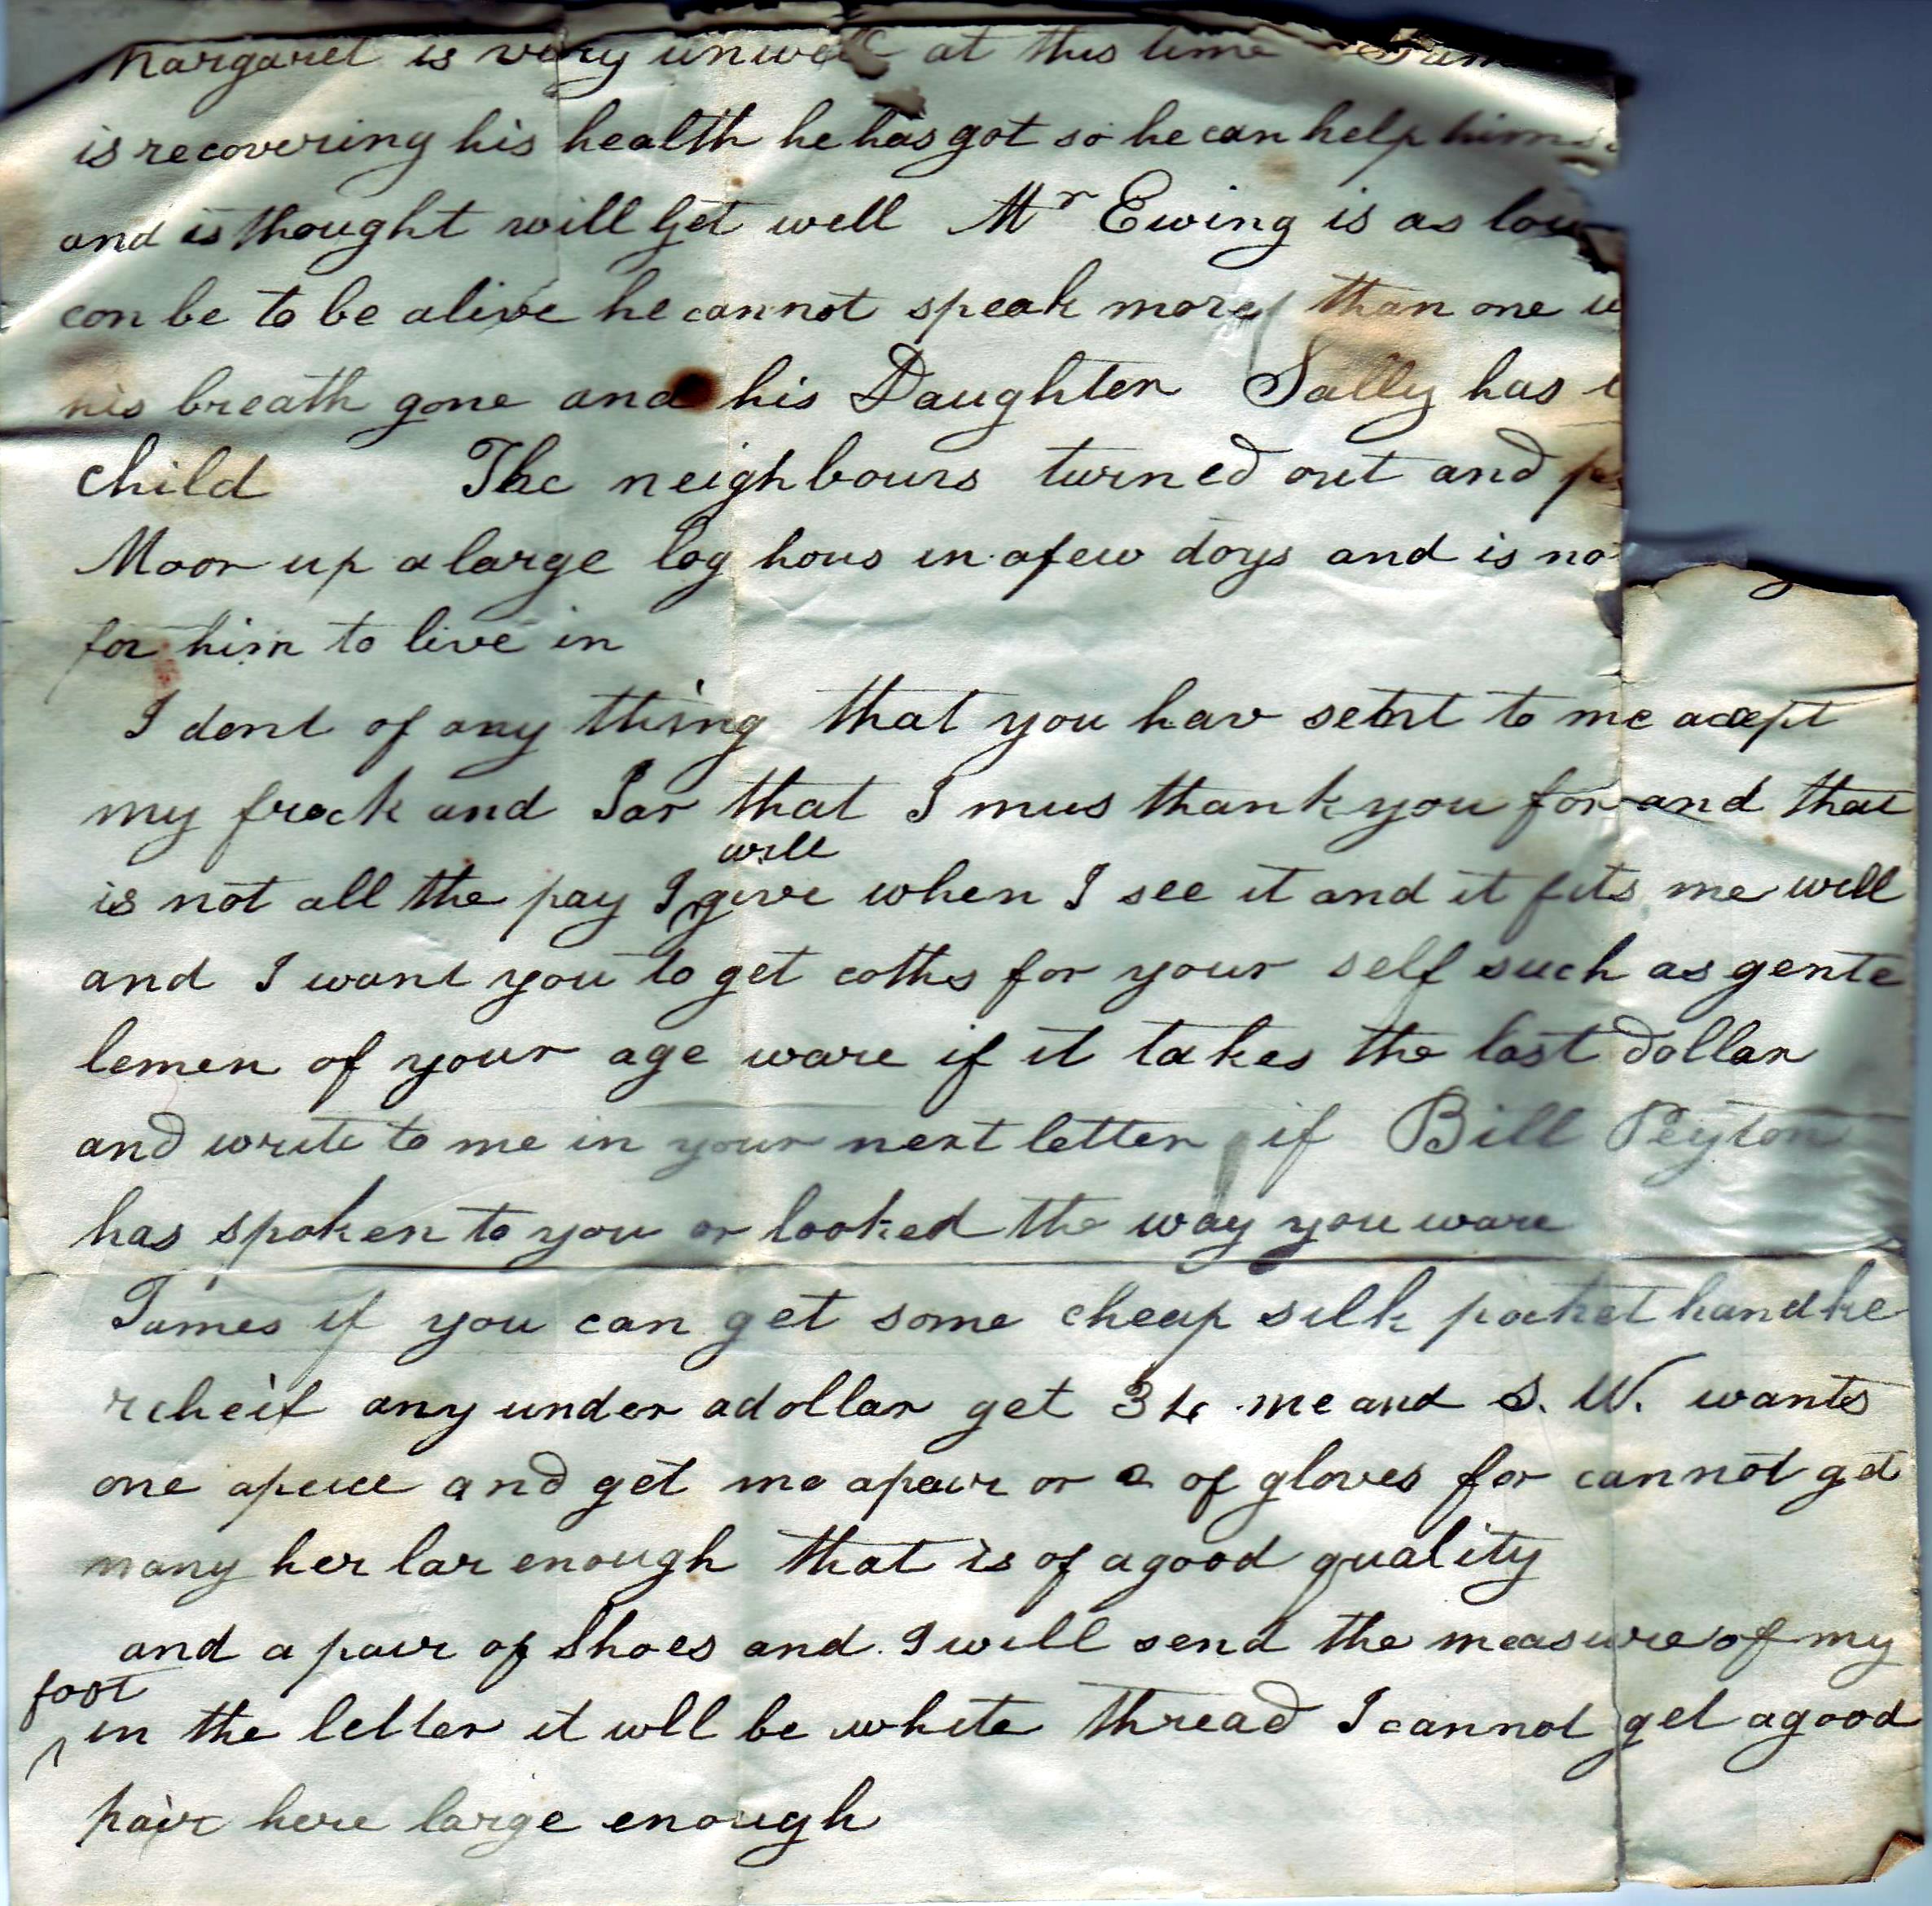 Margaret is very unwell at this time
is recovering his health he has got so he can help hims
and is thought will get well Mr Ewing is as low
con be to be alive he cannot speak more than one
his breath gone and his Daughter Sally has
child The neighbours turned out and
Moor up a large log hous in a few days and is no
for him to live in
I dont of any thing that you hav sent to me acept
my frock and that I mus thank you for and that
is not all the pay I will give when I see it and it fits me well
and I want you to get coths for your self such as gente
lemen of your age ware if it takes the last dollar
and write to me in your next letter if Bill Peyton
has spoken to you or looked the way you ware
James if you can get some cheap silk pocket handke
rcheif any under a dollar get 3 me and S. W. wants
one apeice and get me a pair or 2 of gloves for cannot get
many her lar enough that is of a good quality
and a pair of Shoes and I will send the measure of my
foot
in the letter it wll be white thread I cannot get a good
pair here large enough